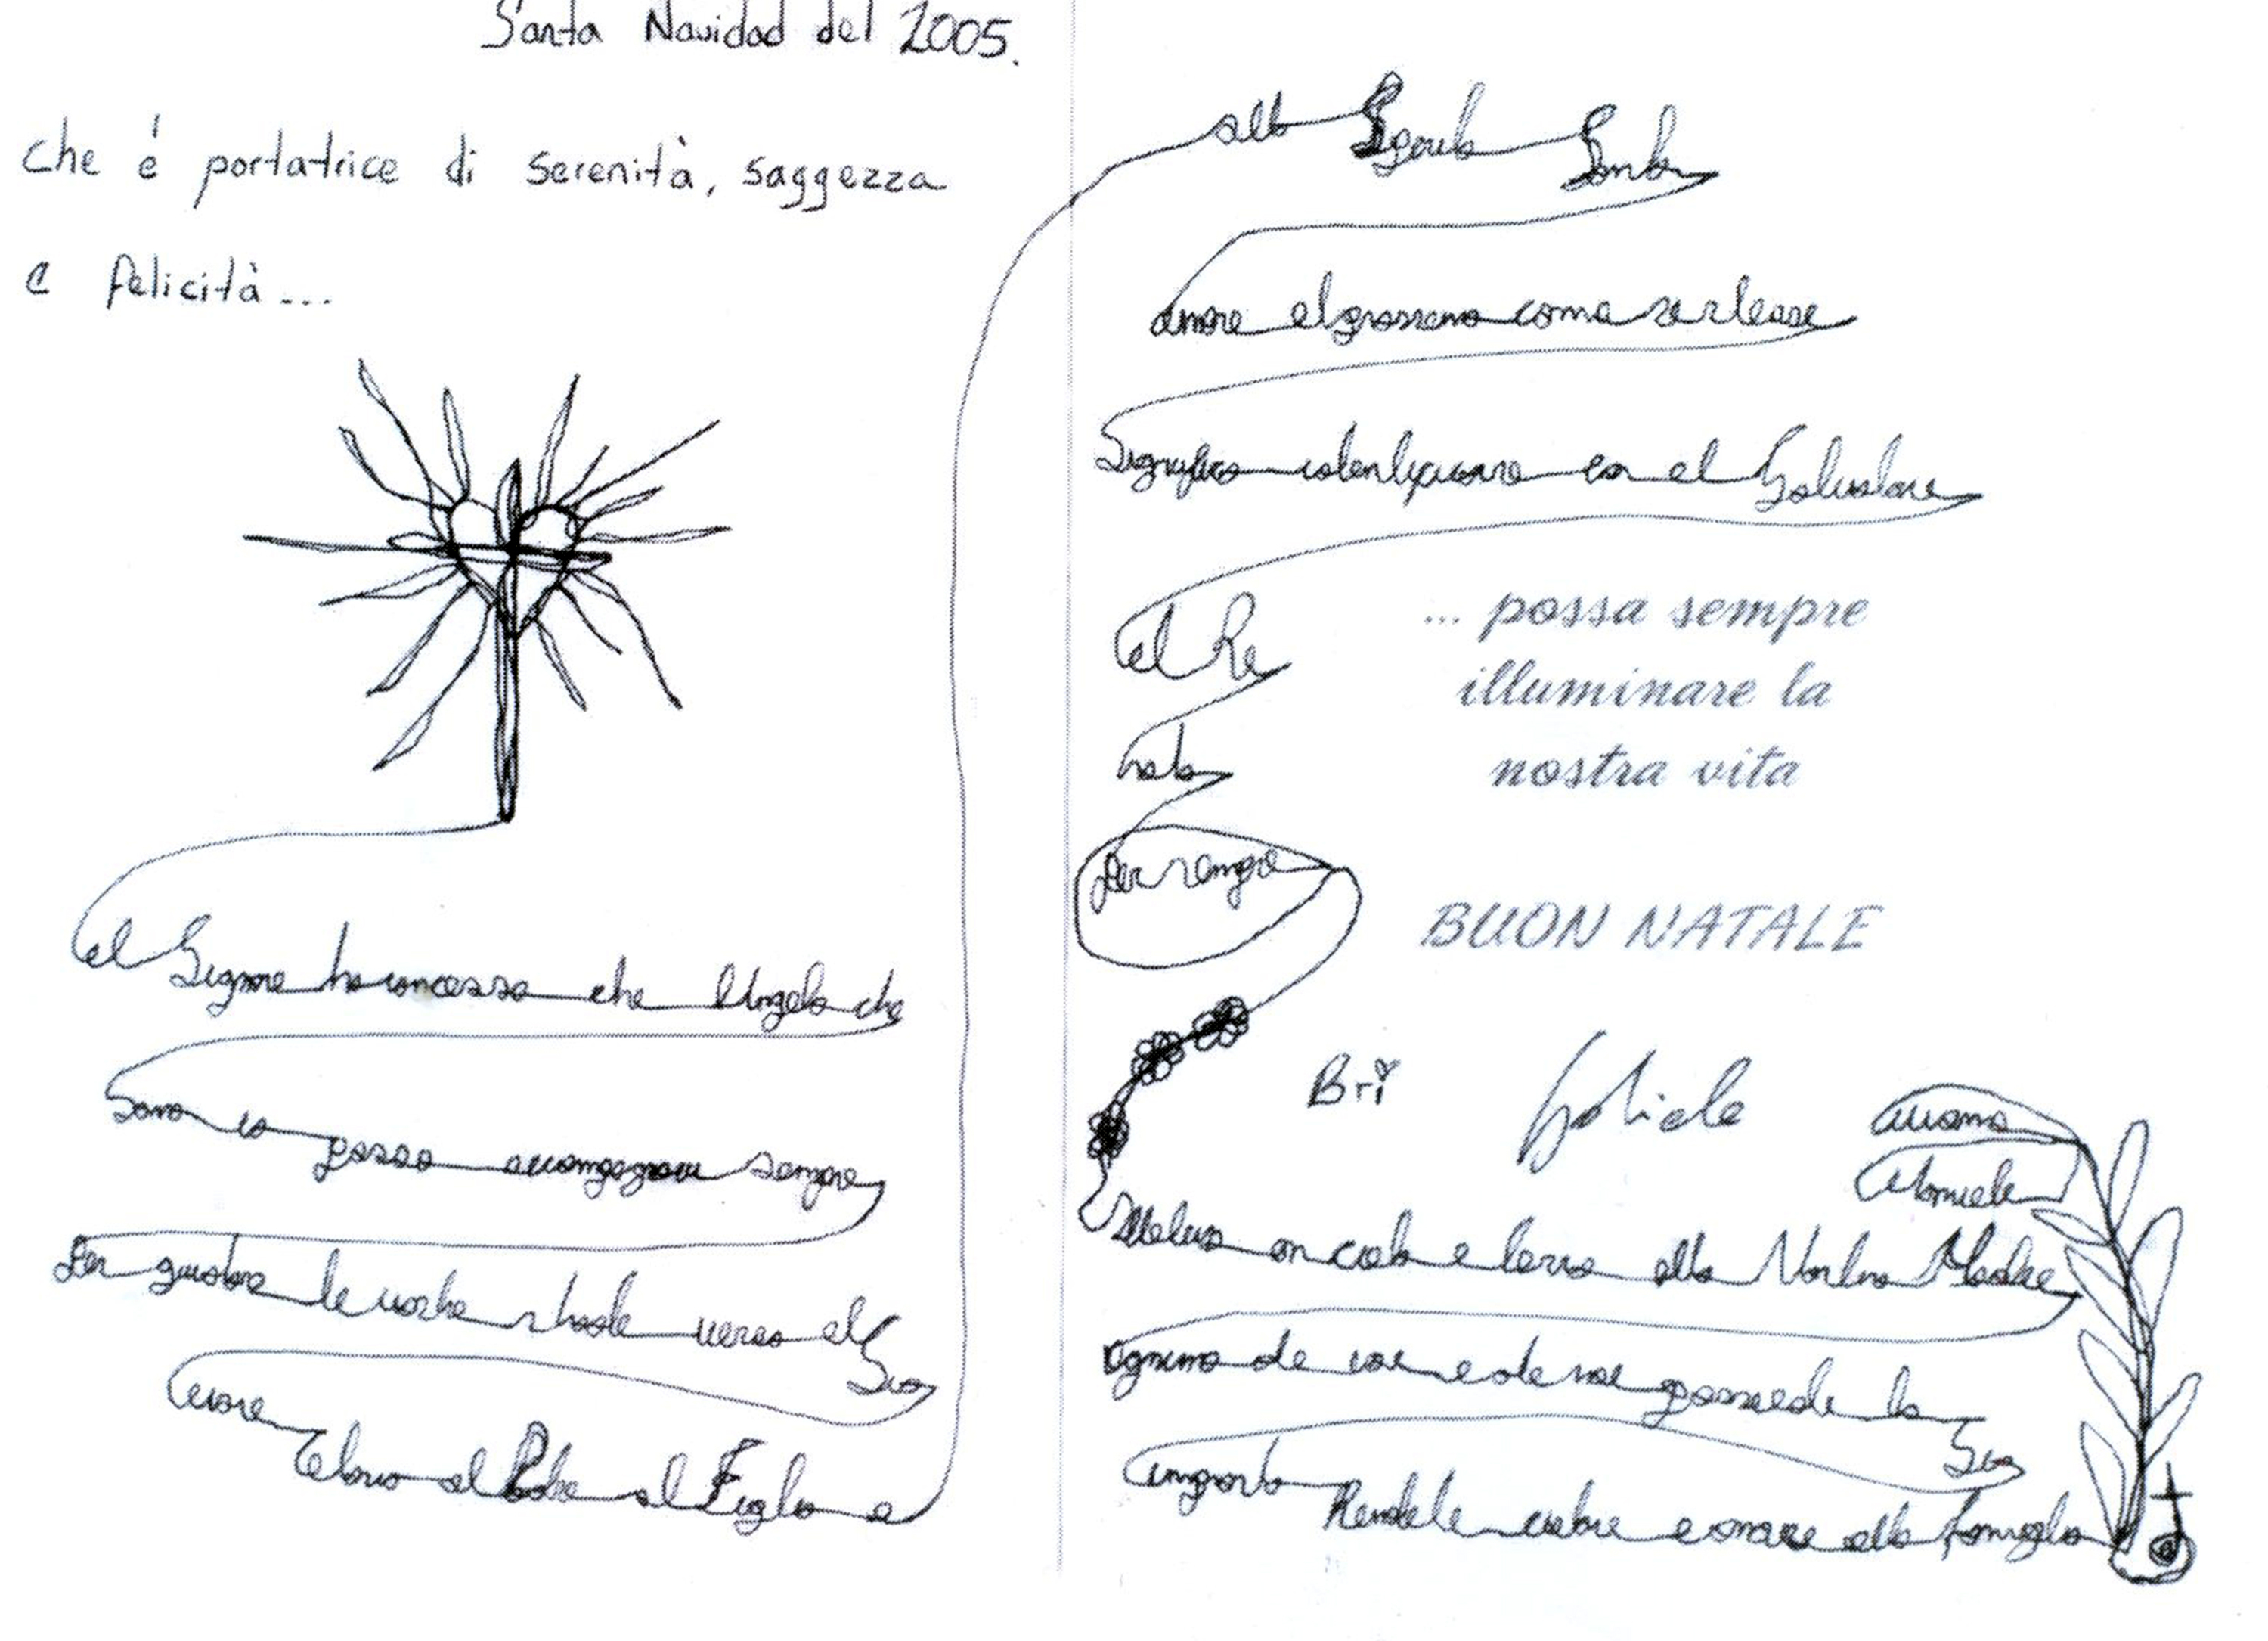 Santa Navidad del 2005.
che é portatrice di serenità, saggezza
e felicità...
el Signore ha concesso che l'Angelo che
Sono io possa accompagnarvi sempre
Per guidare le vostre strade verso el Suo
Cuore
Gloria al Padre al Figlio e
allo Spirito Santo
amore el prossimo come se stesse
Significa identificarse en el Salvatore
el Re
nato
per sempre
... possa sempre
illuminare la
nostra vita
BUON NATALE
Bri
Alleluia en cielo e terra alla Nostra Madre
Ognuno de voi e de noi possiede la Sua
impronta
Rendete onore alla famiglia